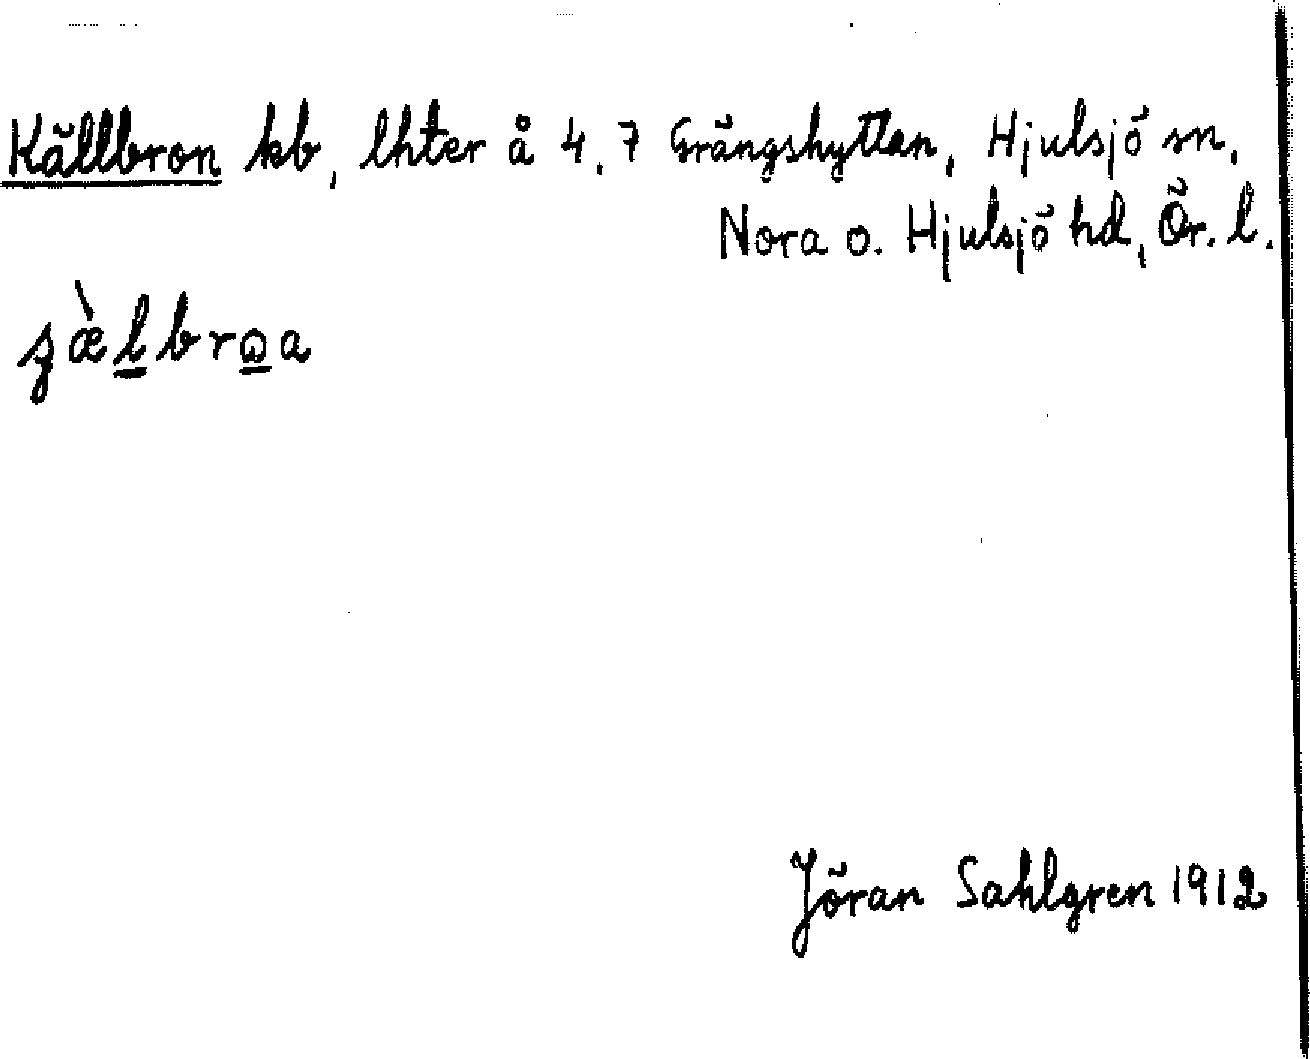 Källbron kb, lhter å 4, 7 Grängshyttan, Hjulsjö sn,
Nora o. Hjulsjö hd, Ör. l.
Jöran Sahlgren 1912